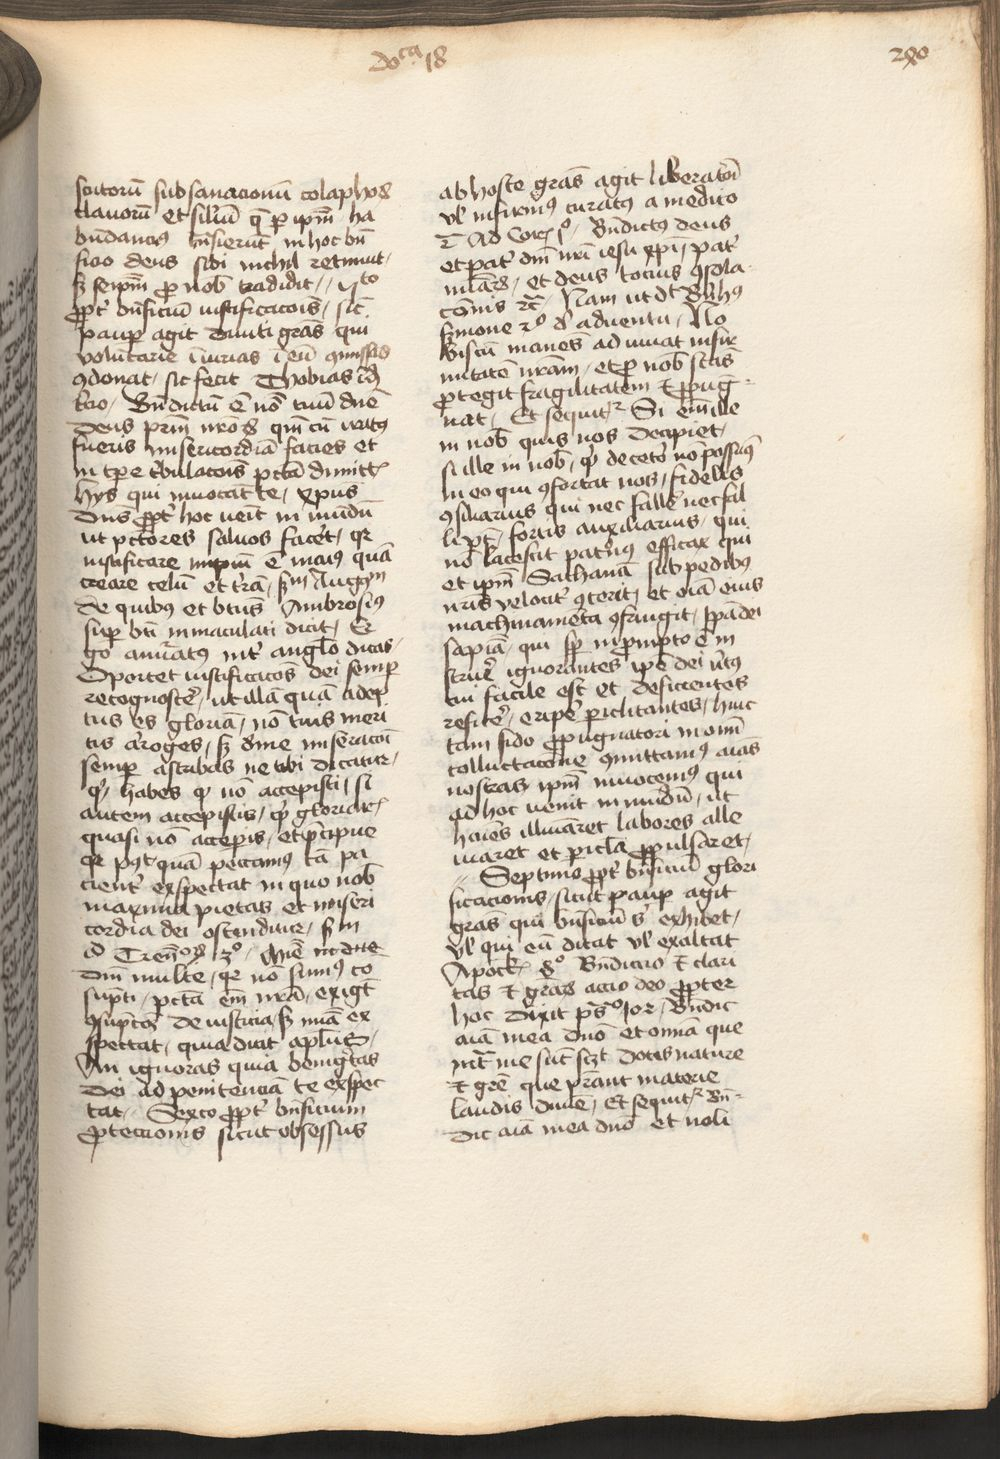 Doca 18
290
scutorū subsanacionū colaphos
clauorū et siliū q̄ p ipm̄ ha
bundancius in hoc bn̄
ficio deus sibi nichil retinuit
sꝫ seipm̄ pro nob̄ tradidit Vto
ꝓpt bn̄ficiū iustificacōis sic
paup agit diuiti grās qui
voluntarie iniurias ī eū
ꝯdonat sic fecit Thobias
tcio Bn̄dictū ē nō tuū dn̄e
deus prm̄ nrōꝝ qui cū iratꝰ
fueris misericordiā facies et
in tpe tbulacōis pctā dimittis
hys qui inuocāt te xpus
dn̄s ꝓpt hoc venit in mūdū
ut pctores saluos facet qr
iustificare impiū ē maiꝰ quā
creare celū et trā sm̄ Augꝰm
de quibꝰ et btus Ambrosiꝰ
sup bti inmaculati dicit Er
go int anglos dicas
Oportet iustificacōs dei semp
recognoscere ut illā quā adep
tus es gloriā nō tuis meri
tis arroges sꝫ dīne miseracōi
semp ascribas ne tibi dicatur
qd habes qd nō accepisti si
autem accepistis qd gloriaris
quasi nō acceperis et pcipue
qr pꝰt quā peccamꝰ tā pa
cient exspectat in quo nob̄
maxima pietas et miseri
cordia dei ostenditur sm̄
id Trenoꝝ 3o Mie
dnī multe qr nō sumꝰ co
supti pctā em̄ nrā exigt
ꝯsuptōꝫ de iusticia sꝫ miā ex
spectat quia dicit aplus
An ignoras quia benigtas
dei ad penitenciā te exspec
tat Sexto ꝓpt bn̄ficium
protectionis sicut obsessus
ab hoste grās agit liberatōi
vl infirmꝰ curatꝰ a medico
2 Ad Corꝫ po Bn̄dictꝰ deus
et pat dnī nri iesu xpi pat
miāꝝ et deus tocius ꝯsola
cōnis etc Nam ut dt Bhus
smone 2o de aduentu No
biscū manes adiuuat infir
mitatē nrām et pro nob̄ scis
protegit fragilitatem et ꝓpug
nat Et sequitr Si em̄ ille
in nob̄ quis nos decipiet
si ille in nob̄ qd de ceto nō possumꝰ
in eo qui ꝯfortat nos fidelis
ꝯsiliarius qui nec falle nec fal
li pt fortis auxiliarius qui
nō lacescit patnꝰ efficax qui
et ipm̄ Sathanā sub pedibꝰ
nris velocit ꝯterit et oīā eius
machinamēta ꝯfringit sp̄pā dei
sapiā qui sp in prompto ē in
strue ignorantes ipe dei vtꝰ
cui facile est et deficientes
refice eripe periclitantes huic
tam fido propugnatori in omī
colluctacōne ꝯmittamꝰ aīas
nostras ipm̄ inuocemꝰ qui
ad hoc venit in mūdū ut
hoīes illuīaret labores alle
uiaret et picla ꝓpulsaret
Septimo ꝓpt bn̄ficiū glori
ficacionis sicut paup agit
grās qui bn̄ficiū s exhibet
vl qui eū ditat vl exaltat
Apock 8o Bn̄dictio et clari
tas et grāꝝ actio deo propter
hoc dixit ps 10r Bn̄dic
aīa mea dnō et omīa que
int me sūt dotis nature
et gre que prant materie
laudis diuīe Et sequitr Bn̄
dic aīa mea dnō et noli